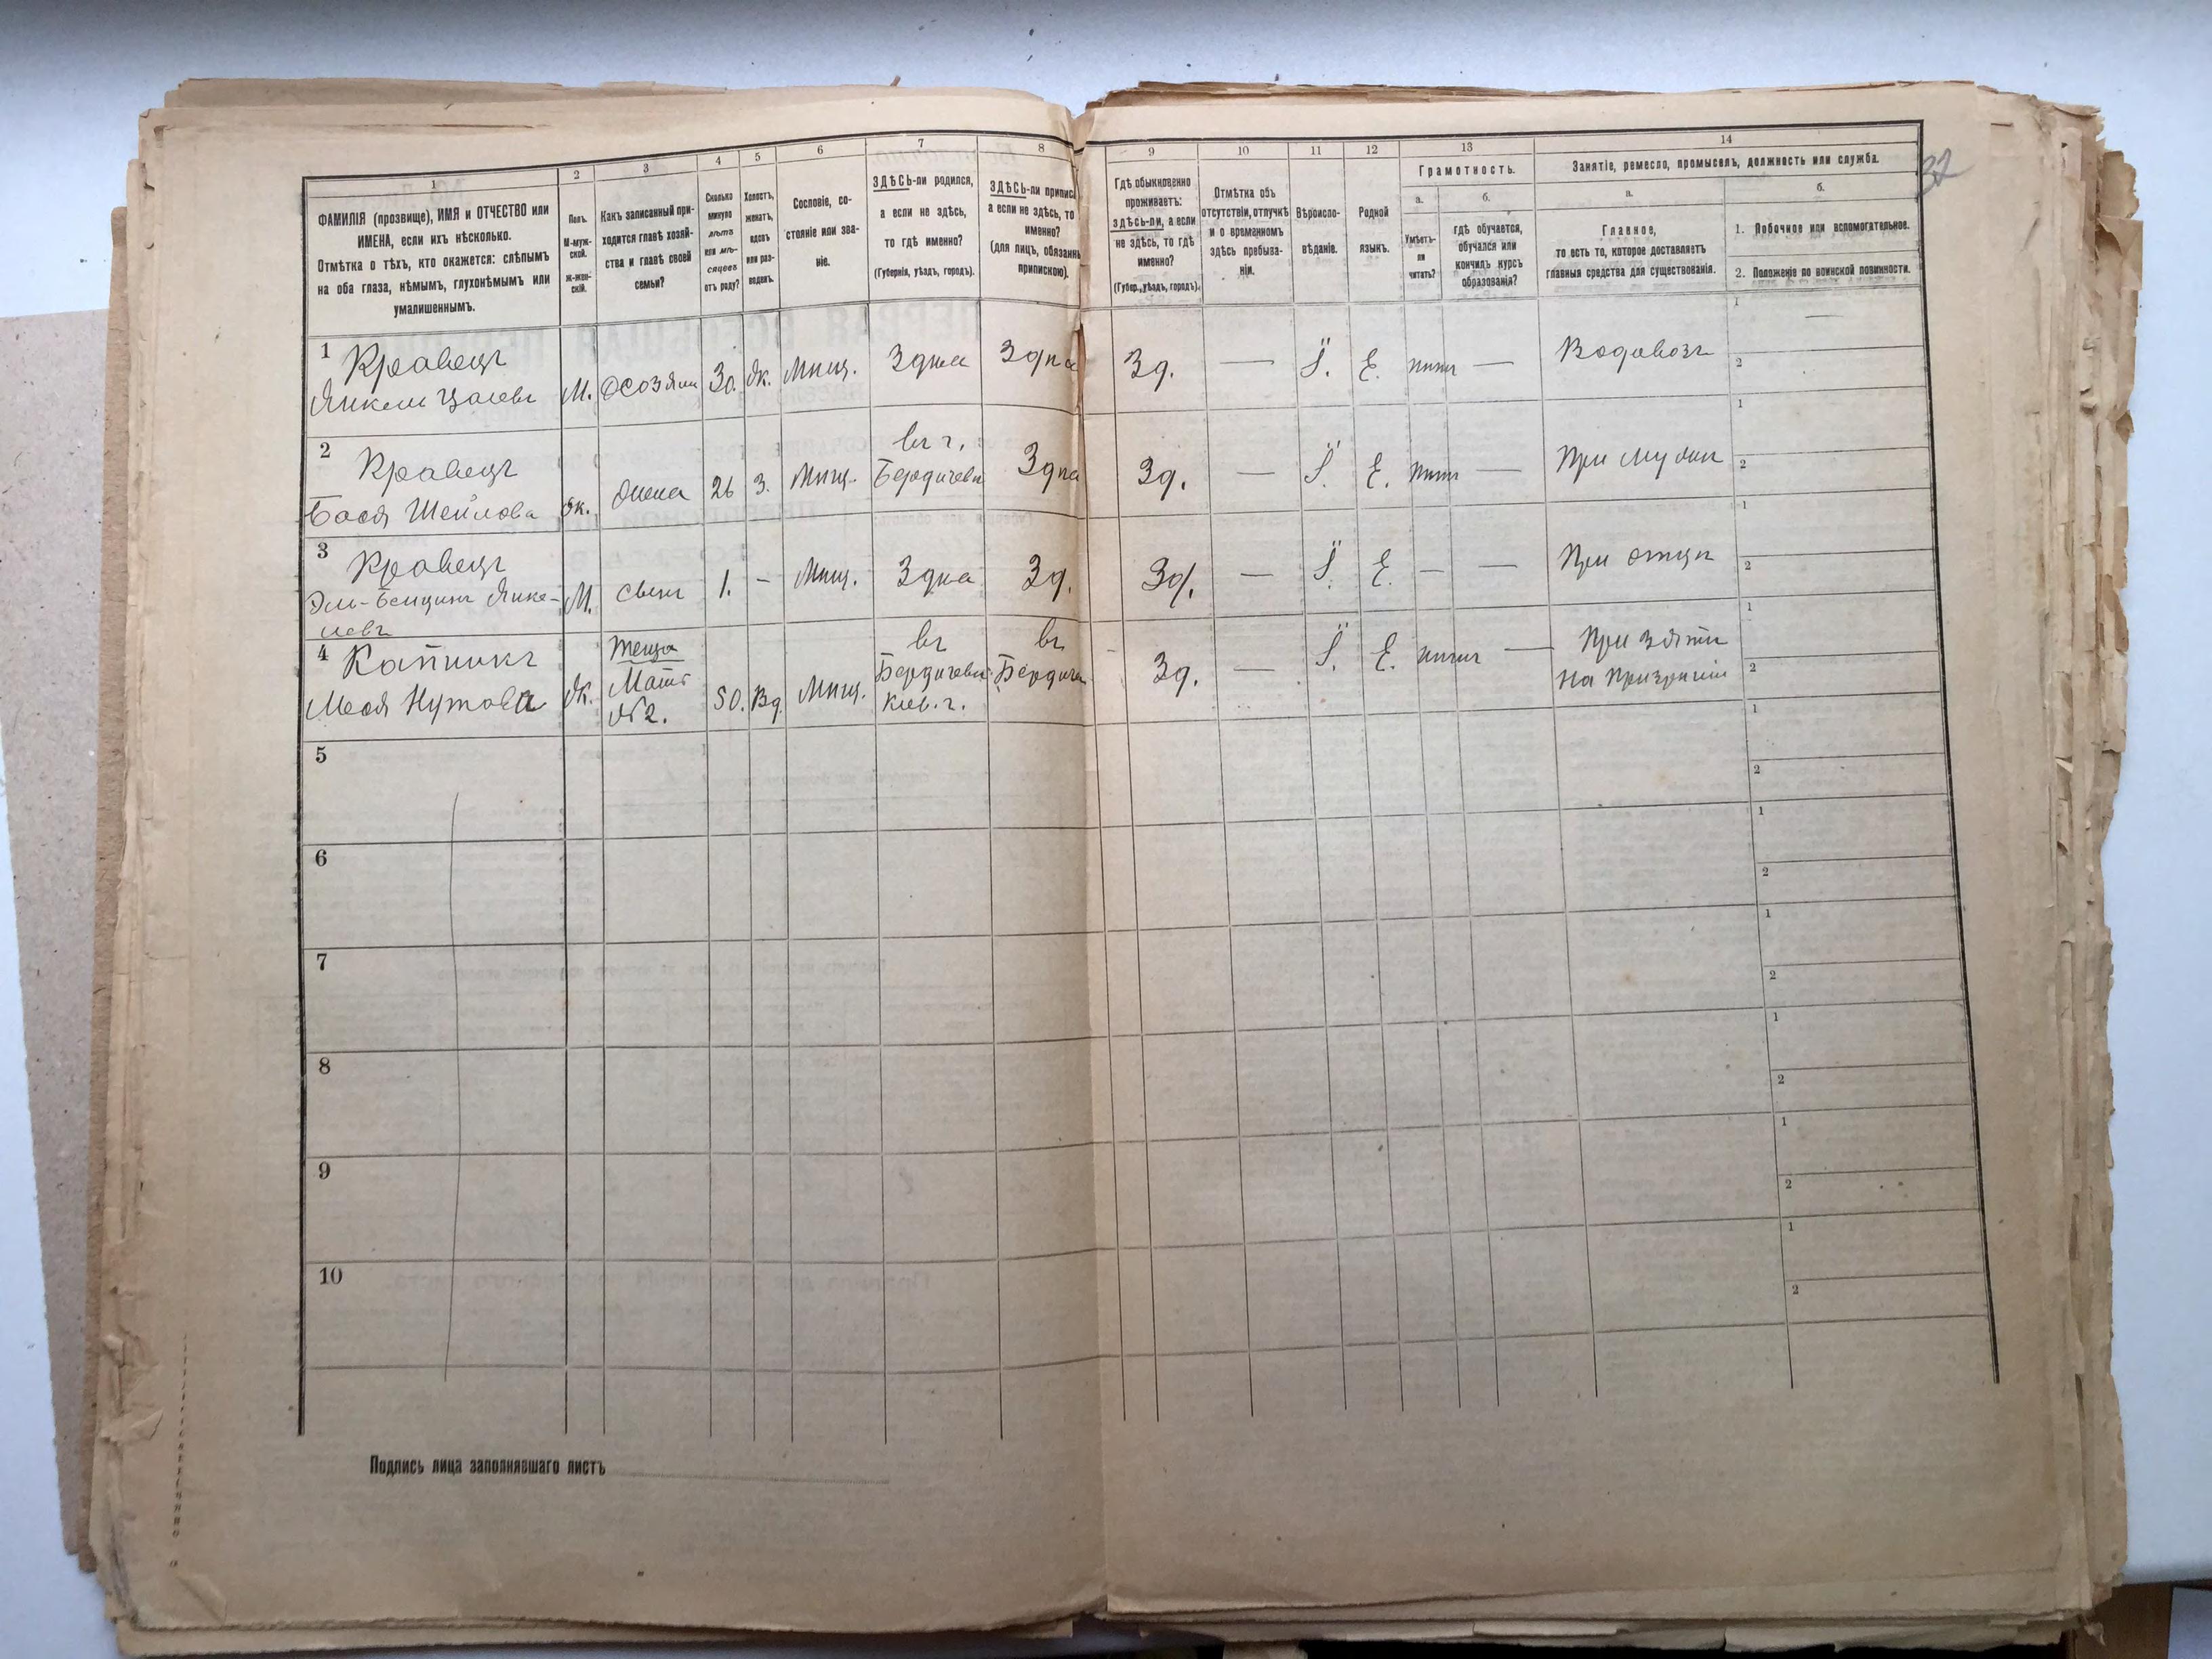 1
ФАМИЛІЯ (прозвище), ИМЯ и ОТЧЕСТВО или
ИМЕНА, если ихъ нѣсколько.
Отмѣтка о тѣхъ, кто окажется: слѣпымъ
на оба глаза, нѣмымъ, глухонѣмымъ или
умалишеннымъ.
2
Полъ.
М-муж-
ской.
Ж-жен-
скій.
3
Какъ записанный при-
ходится главѣ хозяй-
ства и главѣ своей
семьи?
4
Сколько
минуло
лѣтъ
или мѣ-
сяцевъ
отъ роду?
5
Холостъ,
женатъ,
вдовъ
или раз-
веденъ.
6
Сословіе, со-
стояніе или зва-
ніе.
7
ЗДѢСЬ-ли родился,
а если не здѣсь,
то гдѣ именно?
(Губернія, уѣздъ, городъ).
8
ЗДѢСЬ-ли припис
а если не здѣсь, то
именно?
(для лицъ, обязанн
припискою).
9
Гдѣ обыкновенно
проживаетъ:
здѣсь-ли, а если
не здѣсь, то гдѣ
именно?
(Губер., уѣздъ, городъ).
10
Отмѣтка объ
отсутствіи, отлучкѣ
и о временномъ
здѣсь пребыва-
ніи.
11
Вѣроиспо-
вѣданіе.
12
Родной
языкъ.
13
Грамотность.
а.
Умѣетъ-
ли
читать?
б.
гдѣ обучается,
обучался или
кончилъ курсъ
образованія?
14
Занятіе, ремесло, промыселъ, должность или служба.
а.
Главное,
то есть то, которое доставляетъ
главныя средства для существованія.
б.
1. Побочное или вспомогательное.
2. Положеніе по воинской повинности.
32
1 Кравецъ
Янкель
М.
30.
Ж.
Мѣщ.
Здѣсь
Зд.
—
І.
Е.
нѣтъ
—
Водовозъ
1
—
2
2 Кравецъ
Бася Шейлова
Ж.
жена
26
З.
Мѣщ.
въ г.
Бердичевѣ
Зд.
—
І.
Е.
нѣтъ
—
При мужѣ
1
2
3 Кравецъ
Янке-
левъ
М.
сынъ
1.
–
Мѣщ.
Зд.
Зд.
—
І.
Е.
—
—
При отцѣ
1
2
4
Нутова
Ж.
теща
Мать
№ 2.
50.
Вд.
Мѣщ.
въ
Бердичевѣ
Кіев. г.
въ
Бердичев
Зд.
—
І.
Е.
нѣтъ
—
При зятѣ
на призрѣніи
1
2
5
1
2
6
1
2
7
1
2
8
1
2
9
1
2
10
1
2
Подпись лица заполнявшаго листъ